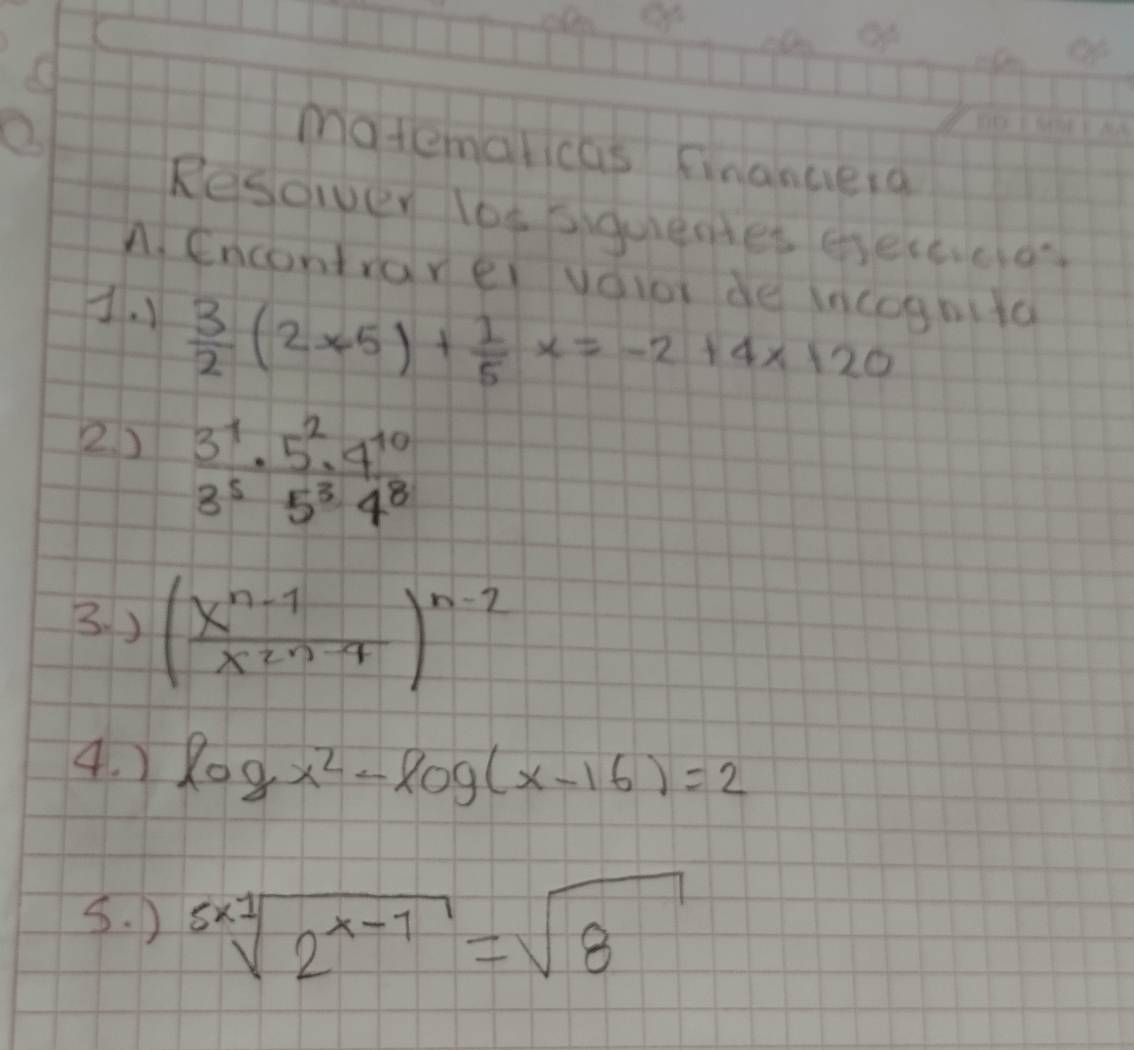 Matematicas Financiera
Resolver los siguientes ejercicios
A. Encontrar el valor de incognita
1.) 3/2 (2x+5) + 1/5 x = -2 + 4x + 20
2) 3^1 . 5^2 . 4^10 / 3^5 5^3 4^8
3.) (x^n-1 / x^2n-4)^n-2
4.) log x^2 - log(x-16) = 2
5.) 5x1√2^x-1 = √8